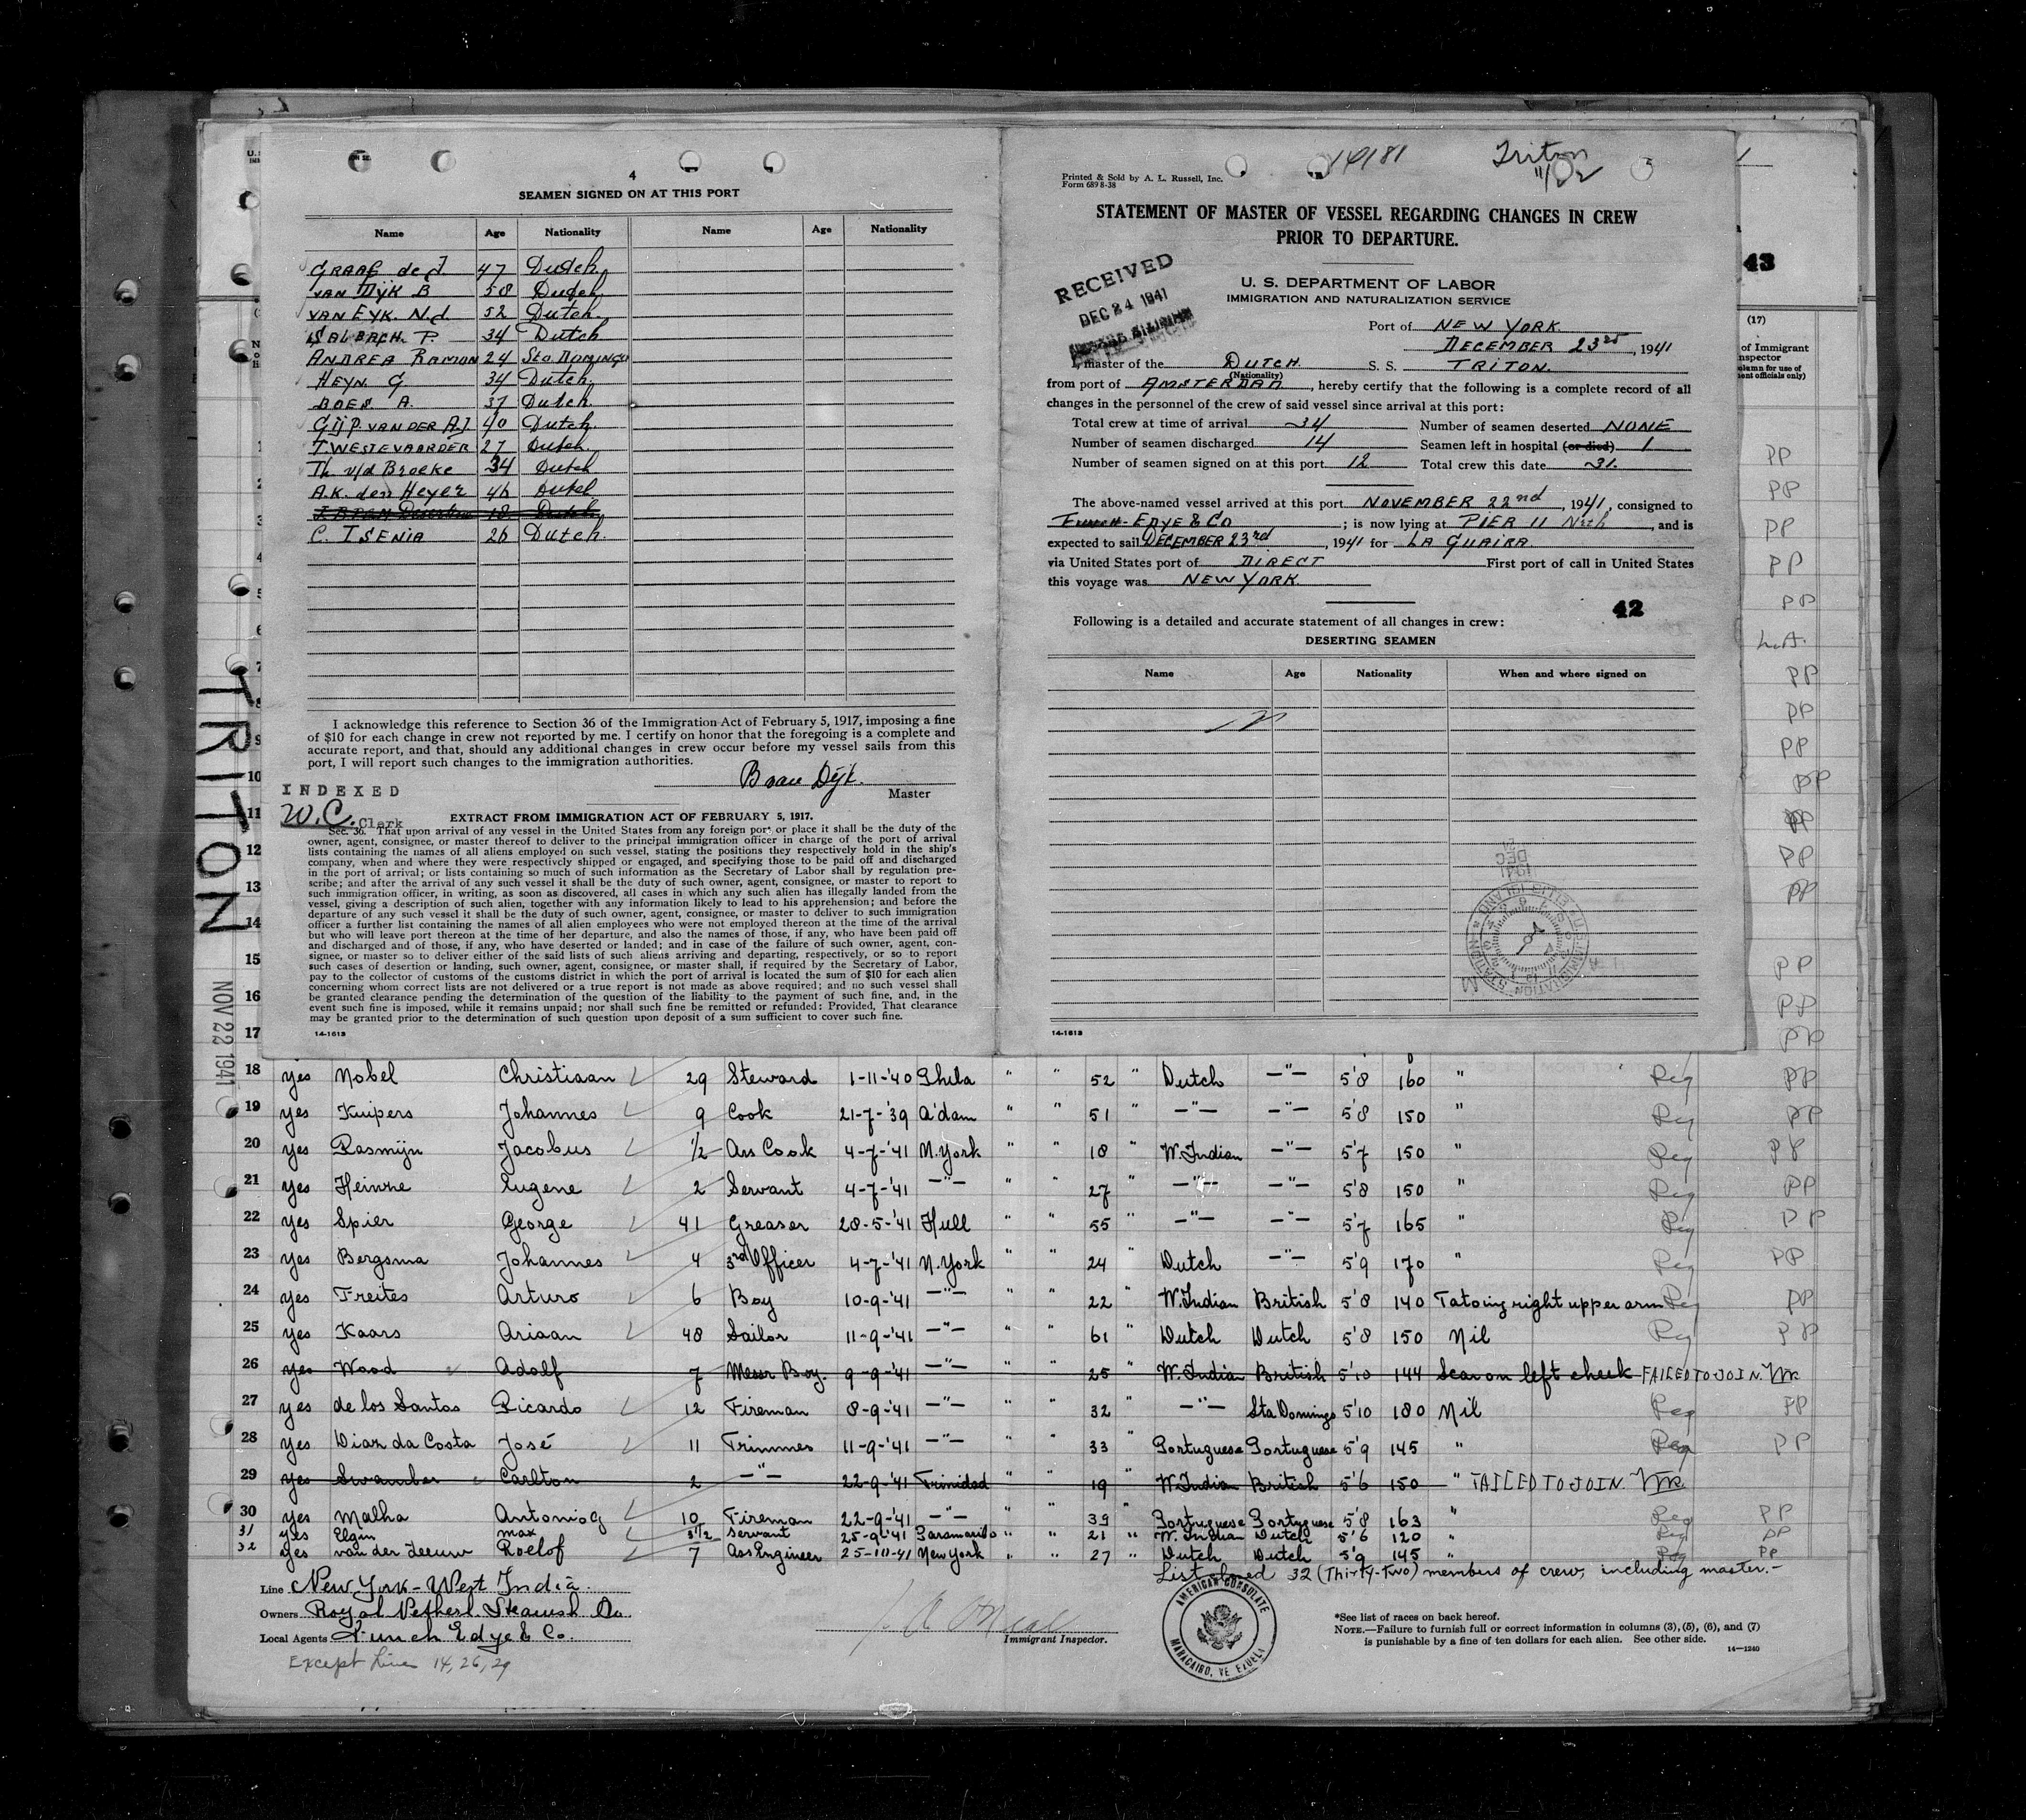 4
SEAMEN SIGNED ON AT THIS PORT
Name Age Nationality Name Age Nationality
GRAAF de J 47 Dutch
VAN DIJK B 58 Dutch
VAN EYK. N.J. 52 Dutch
SALBACH. P. 34 Dutch
ANDREA RAMON 24 Sto DOMINGO
HEYN. G. 34 Dutch
BOES A. 37 Dutch
GIJP VAN DER A.J. 40 Dutch
T. WESTEVAARDER 27 Dutch
Th v/d Broeke 34 Dutch
A.K. den Heyer 46 Dutch
18 Dutch
C. ISENIA 26 Dutch.
I acknowledge this reference to Section 36 of the Immigration Act of February 5, 1917, imposing a fine
of $10 for each change in crew not reported by me. I certify on honor that the foregoing is a complete and
accurate report, and that, should any additional changes in crew occur before my vessel sails from this
port, I will report such changes to the immigration authorities.
B van Dijk.
Master
INDEXED
W.C. Clerk
EXTRACT FROM IMMIGRATION ACT OF FEBRUARY 5, 1917.
Sec. 36. That upon arrival of any vessel in the United States from any foreign port or place it shall be the duty of the
owner, agent, consignee, or master thereof to deliver to the principal immigration officer in charge of the port of arrival
lists containing the names of all aliens employed on such vessel, stating the positions they respectively hold in the ship's
company, when and where they were respectively shipped or engaged, and specifying those to be paid off and discharged
in the port of arrival; or lists containing so much of such information as the Secretary of Labor shall by regulation pre-
scribe; and after the arrival of any such vessel it shall be the duty of such owner, agent, consignee, or master to report to
such immigration officer, in writing, as soon as discovered, all cases in which any such alien has illegally landed from the
vessel, giving a description of such alien, together with any information likely to lead to his apprehension; and before the
departure of any such vessel it shall be the duty of such owner, agent, consignee, or master to deliver to such immigration
officer a further list containing the names of all alien employees who were not employed thereon at the time of the arrival
but who will leave port thereon at the time of her departure, and also the names of those, if any, who have been paid off
and discharged and of those, if any, who have deserted or landed; and in case of the failure of such owner, agent, con-
signee, or master so to deliver either of the said lists of such aliens arriving and departing, respectively, or so to report
such cases of desertion or landing, such owner, agent, consignee, or master shall, if required by the Secretary of Labor,
pay to the collector of customs of the customs district in which the port of arrival is located the sum of $10 for each alien
concerning whom correct lists are not delivered or a true report is not made as above required; and no such vessel shall
be granted clearance pending the determination of the question of the liability to the payment of such fine, and, in the
event such fine is imposed, while it remains unpaid; nor shall such fine be remitted or refunded: Provided, That clearance
may be granted prior to the determination of such question upon deposit of a sum sufficient to cover such fine.
14-1613
14181 Triton
11/22
Printed & Sold by A. L. Russell, Inc.
Form 689 8-38
STATEMENT OF MASTER OF VESSEL REGARDING CHANGES IN CREW
PRIOR TO DEPARTURE.
RECEIVED
DEC 24 1941
U. S. DEPARTMENT OF LABOR
IMMIGRATION AND NATURALIZATION SERVICE
Port of NEW YORK
DECEMBER 23rd, 1941
I, master of the DUTCH S. S. TRITON.
(Nationality)
from port of AMSTERDAM, hereby certify that the following is a complete record of all
changes in the personnel of the crew of said vessel since arrival at this port:
Total crew at time of arrival 34 Number of seamen deserted NONE
Number of seamen discharged 14 Seamen left in hospital (or died) 1
Number of seamen signed on at this port 12 Total crew this date 31.
The above-named vessel arrived at this port NOVEMBER 22nd, 1941, consigned to
Funch-EDYE & Co; is now lying at PIER 11 Nrth, and is
expected to sail DECEMBER 23rd, 1941 for LA GUAIRA.
via United States port of DIRECT First port of call in United States
this voyage was NEW YORK.
42
Following is a detailed and accurate statement of all changes in crew:
DESERTING SEAMEN
Name Age Nationality When and where signed on
14-1613
43
(17)
of Immigrant
nspector
olumn for use of
ent officials only)
PP
PP
PP
PP
PP
L.A.
PP
PP
PP
PP
PP
PP
PP
PP
PP
PP
TRITON
NOV 22 1941
10
11
12
13
14
15
16
17
18 yes Nobel Christiaan 29 Steward 1-11-'40 Phila " " 52 " Dutch —"— 5'8 160 " Reg PP
19 yes Kuipers Johannes 9 Cook 21-7-'39 A'dam " " 51 " —"— —"— 5'8 150 " Reg PP
20 yes Rasmijn Jacobus 1/2 Ass Cook 4-7-'41 N.York " " 18 " W.Indian —"— 5'7 150 " Reg PP
21 yes Heinze Eugene 2 Servant 4-7-'41 —"— " " 27 " —"— —"— 5'8 150 " Reg PP
22 yes Spier George 41 Greaser 28-5-'41 Hull " " 55 " —"— —"— 5'7 165 " Reg PP
23 yes Bergsma Johannes 4 3rd Officer 4-7-'41 N.York " " 24 " Dutch —"— 5'9 170 " Reg PP
24 yes Freites Arturo 6 Boy 10-9-'41 —"— " " 22 " W.Indian British 5'8 140 Tatoing right upper arm Reg PP
25 yes Kaars Ariaan 48 Sailor 11-9-'41 —"— " " 61 " Dutch Dutch 5'8 150 Nil Reg PP
26 yes Wood Adolf 7 Mess Boy. 9-9-'41 —"— " " 25 " W.Indian British 5'10 144 Scar on left cheek FAILED TO JOIN.
27 yes de los Santos Ricardo 12 Fireman 8-9-'41 —"— " " 32 " —"— Sta Domingo 5'10 180 Nil Reg PP
28 yes Diaz da Costa José 11 Trimmer 11-9-'41 —"— " " 33 " Portuguese Portuguese 5'9 145 " Reg PP
29 yes Swamber Carlton 2 —"— 22-9-'41 Trinidad " " 19 " W.Indian British 5'6 150 " FAILED TO JOIN.
30 yes Malha Antonio G 10 Fireman 22-9-'41 —"— " " 39 " Portuguese Portuguese 5'8 163 " Reg PP
31 yes Elgin max 3 1/2 Servant 25-9-'41 Paramaribo " " 21 " W. Indian Dutch 5'6 120 " Reg PP
32 yes van der Leeuw Roelof 7 Ass Engineer 25-10-41 New York " " 27 " Dutch Dutch 5'9 145 " Reg PP
List closed 32 (Thirty-two) members of crew, including master.-
Line New York - West India.
Owners Royal Netherl. Steamsh. Co.
Local Agents Funch Edye & Co.
Except Line 14, 26, 29
Immigrant Inspector.
AMERICAN CONSULATE
MARACAIBO, VENEZUELA
*See list of races on back hereof.
NOTE.—Failure to furnish full or correct information in columns (3), (5), (6), and (7)
is punishable by a fine of ten dollars for each alien. See other side.
14—1240